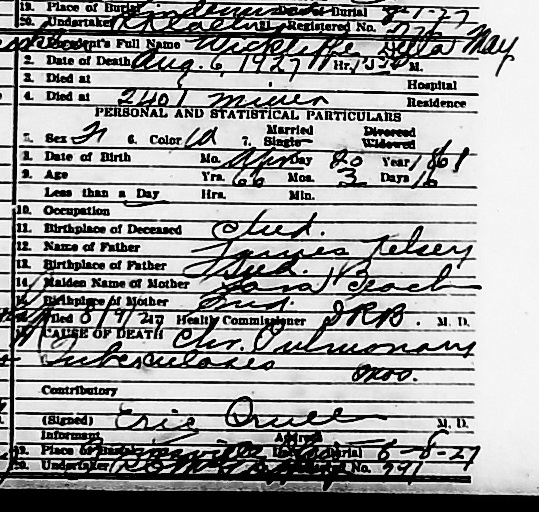 19. Place of Burial Burial 8-1-27
20. Undertaker Registered No.
1. Full Name Wickliffe Della May
2. Date of Death Aug. 6, 1927 Hr. M.
3. Died at Hospital
4. Died at 2401 Residence
PERSONAL AND STATISTICAL PARTICULARS
Married Divorced
5. Sex F 6. Color W 7. Single Widowed
8. Date of Birth Mo. Apr Day 20 Year 1861
9. Age Yrs. 66 Mos. 3 Days 16
Less than a Day Hrs. Min.
10. Occupation
11. Birthplace of Deceased Ind.
12. Name of Father James Kelsey
13. Birthplace of Father Ind.
14. Maiden Name of Mother Beach
15. Birthplace of Mother Ind.
Filed 8/9/27 Health Commissioner M. D.
CAUSE OF DEATH Chr. Pulmonary
Tuberculosis
Contributory
(Signed) Eric M. D.
Informant Address
19. Place of Burial Burial 8-8-27
20. Undertaker No. 991